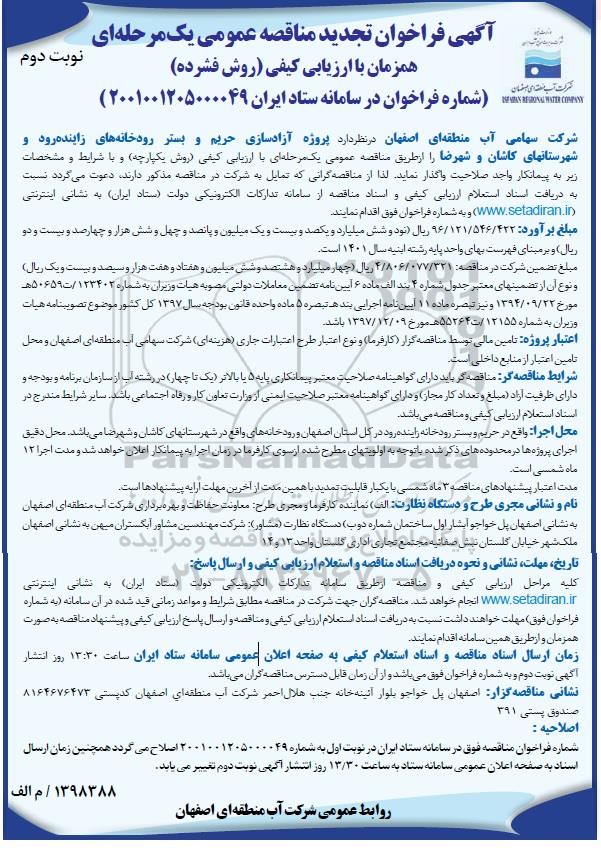 آگهی فراخوان تجدید مناقصه عمومی یک‌مرحله‌ای
همزمان با ارزیابی کیفی (روش فشرده)
(شماره فراخوان در سامانه ستاد ایران ۲۰۰۱۰۰۱۲۰۵۰۰۰۰۴۹)
نوبت دوم
شرکت آب منطقه‌ای اصفهان
ISFAHAN REGIONAL WATER COMPANY
شرکت سهامی آب منطقه‌ای اصفهان درنظردارد پروژه آزادسازی حریم و بستر رودخانه‌های زاینده‌رود و
شهرستانهای کاشان و شهرضا را ازطریق مناقصه عمومی یک‌مرحله‌ای با ارزیابی کیفی (روش یکپارچه) و با شرایط و مشخصات
زیر به پیمانکار واجد صلاحیت واگذار نماید. لذا از مناقصه‌گرانی که تمایل به شرکت در مناقصه مذکور دارند، دعوت می‌گردد نسبت
به دریافت اسناد استعلام ارزیابی کیفی و اسناد مناقصه از سامانه تدارکات الکترونیکی دولت (ستاد ایران) به نشانی اینترنتی
(www.setadiran.ir) و به شماره فراخوان فوق اقدام نمایند.
مبلغ برآورد: ۹۶/۱۲۱/۵۴۶/۴۲۲ ریال (نود و شش میلیارد و یکصد و بیست و یک میلیون و پانصد و چهل و شش هزار و چهارصد و بیست و دو
ریال) و بر مبنای فهرست بهای واحد پایه رشته ابنیه سال ۱۴۰۱ است.
مبلغ تضمین شرکت در مناقصه: ۴/۸۰۶/۰۷۷/۳۲۱ ریال (چهار میلیارد و هشتصد و شش میلیون و هفتاد و هفت هزار و سیصد و بیست و یک ریال)
و نوع آن از تضمینهای معتبر جدول شماره ۴ بند الف ماده ۶ آیین‌نامه تضمین معاملات دولتی مصوبه هیات وزیران به شماره ۱۲۳۴۰۲/ت۵۰۶۵۹هـ
مورخ ۱۳۹۴/۰۹/۲۲ و نیز تبصره ماده ۱۱ آیین نامه اجرایی بند هـ تبصره ۵ ماده واحده قانون بودجه سال ۱۳۹۷ کل کشور موضوع تصویبنامه هیات
وزیران به شماره ۱۲۱۵۵/ت۵۵۲۶۴هـ مورخ ۱۳۹۷/۱۲/۰۹ باشد.
اعتبار پروژه: تامین مالی توسط مناقصه‌گزار (کارفرما) و نوع اعتبار طرح اعتبارات جاری (هزینه‌ای) شرکت سهامی آب منطقه‌ای اصفهان و محل
تامین اعتبار از منابع داخلی است.
شرایط مناقصه‌گر: مناقصه‌گر باید دارای گواهینامه صلاحیت معتبر پیمانکاری پایه ۵ یا بالاتر (یک تا چهار) در رشته آب از سازمان برنامه و بودجه و
دارای ظرفیت آزاد (مبلغ و تعداد کار مجاز) و دارای گواهینامه معتبر صلاحیت ایمنی از وزارت تعاون کار و رفاه اجتماعی باشد. سایر شرایط مندرج در
اسناد استعلام ارزیابی کیفی و مناقصه می‌باشد.
محل اجرا: واقع در حریم و بستر رودخانه زاینده‌رود در کل استان اصفهان و رودخانه‌های واقع در شهرستانهای کاشان و شهرضا می‌باشد. محل دقیق
اجرای پروژه‌ها در محدوده‌های ذکر شده باتوجه به اولویتهای مطرح شده ازسوی کارفرما در زمان اجرا به پیمانکار اعلان خواهد شد و مدت اجرا ۱۲
ماه شمسی است.
مدت اعتبار پیشنهادهای مناقصه ۳ ماه شمسی با یکبار قابلیت تمدید با همین مدت از آخرین مهلت ارایه پیشنهادها است.
نام و نشانی مجری طرح و دستگاه نظارت: الف) نماینده کارفرما و مجری طرح: معاونت حفاظت و بهره‌برداری شرکت آب منطقه‌ای اصفهان
به نشانی اصفهان پل خواجو آبشار اول ساختمان شماره دو ب) دستگاه نظارت (مشاور): شرکت مهندسین مشاور آبگستران میهن به نشانی اصفهان
ملک‌شهر خیابان گلستان نبش صفائیه مجتمع تجاری اداری گلستان واحد ۱۳ و ۱۴
تاریخ، مهلت، نشانی و نحوه دریافت اسناد مناقصه و استعلام ارزیابی کیفی و ارسال پاسخ:
کلیه مراحل ارزیابی کیفی و مناقصه ازطریق سامانه تدارکات الکترونیکی دولت (ستاد ایران) به نشانی اینترنتی
www.setadiran.ir انجام خواهد شد. مناقصه گران جهت شرکت در مناقصه مطابق شرایط و مواعد زمانی قید شده در آن سامانه (به شماره
فراخوان فوق) مهلت خواهند داشت نسبت به دریافت اسناد استعلام ارزیابی کیفی و مناقصه و ارسال پاسخ ارزیابی کیفی و پیشنهاد مناقصه به صورت
همزمان و ازطریق همین سامانه اقدام نمایند.
زمان ارسال اسناد مناقصه و اسناد استعلام کیفی به صفحه اعلان عمومی سامانه ستاد ایران ساعت ۱۳:۳۰ روز انتشار
آگهی نوبت دوم و به شماره فراخوان فوق می‌باشد و از آن زمان قابل دسترس مناقصه‌گران می‌باشد.
نشانی مناقصه‌گزار: اصفهان پل خواجو بلوار آئینه‌خانه جنب هلال‌احمر شرکت آب منطقه‌ای اصفهان کدپستی ۸۱۶۴۶۷۶۴۷۳
صندوق پستی ۳۹۱
اصلاحیه :
شماره فراخوان مناقصه فوق در سامانه ستاد ایران در نوبت اول به شماره ۲۰۰۱۰۰۱۲۰۵۰۰۰۰۴۹ اصلاح می گردد همچنین زمان ارسال
اسناد به صفحه اعلان عمومی سامانه ستاد به ساعت ۱۳/۳۰ روز انتشار آگهی نوبت دوم تغییر می یابد.
۱۳۹۸۳۸۸ / م الف
روابط عمومی شرکت آب منطقه‌ای اصفهان
ParsNamadData